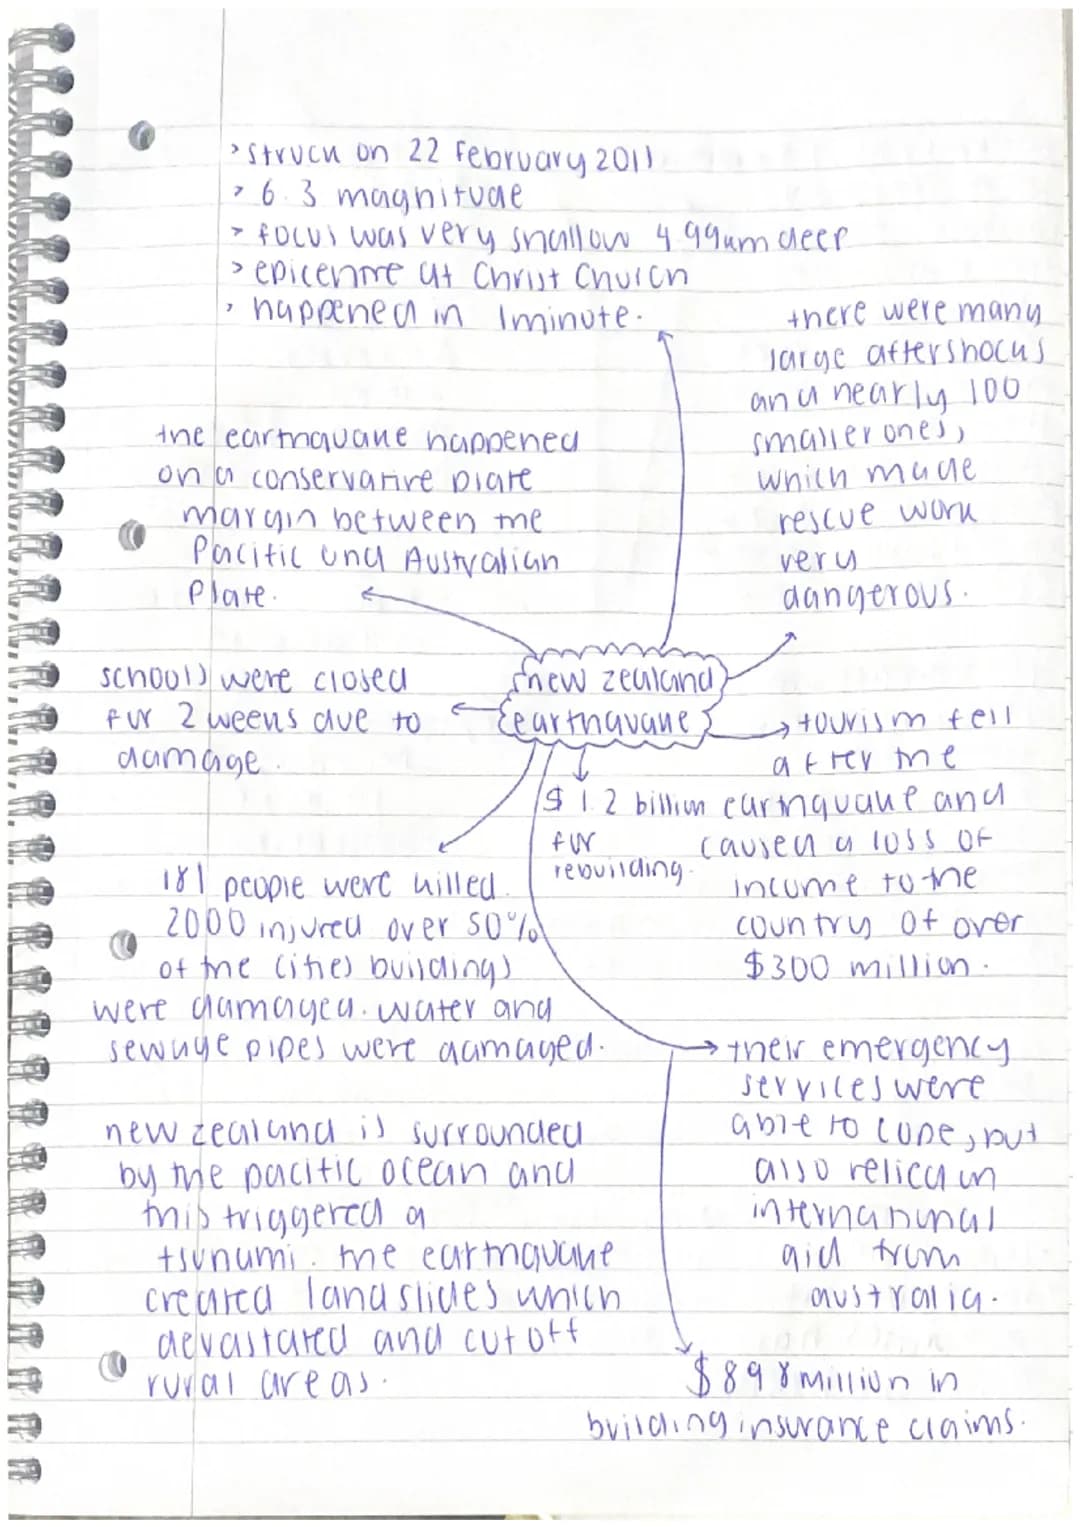 > struck on 22 February 2011
> 6.3 magnitude
> focus was very shallow 4.99km deep
> epicentre at Christ Church
> happened in 1minute.
there were many
large aftershocks
and nearly 100
smaller ones,
which made
rescue work
very
dangerous.
the earthquake happened
on a conservative plate
margin between the
Pacific and Australian
Plate.
new zealand
earthquake
schools were closed
for 2 weeks due to
damage.
→ tourism fell
after the
earthquake and
caused a loss of
income to the
country of over
$300 million.
$1.2 billion
for
rebuilding.
181 people were killed.
2000 injured over 50%
of the cities buildings
were damaged. water and
sewage pipes were damaged.
→ their emergency
services were
able to cope, but
also relied on
international
aid from
australia.
new zealand is surrounded
by the pacific ocean and
this triggered a
tsunami. the earthquake
created landslides which
devastated and cut off
rural areas.
$898 million in
building insurance claims.